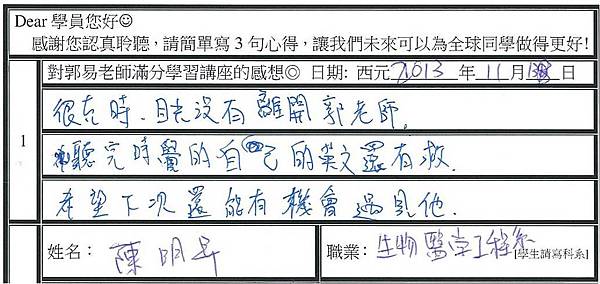 Dear 學員您好☺
感謝您認真聆聽，請簡單寫 3 句心得，讓我們未來可以為全球同學做得更好!
對郭易老師滿分學習講座的感想◎ 日期: 西元 2013 年 11 月 日
1
很在時，目光沒有離開郭老師.
聽完時覺的自己的英文還有救.
希望下次還能有機會遇見他.
姓名： 陳明昇
職業： 生物醫學工程系 [學生請寫科系]